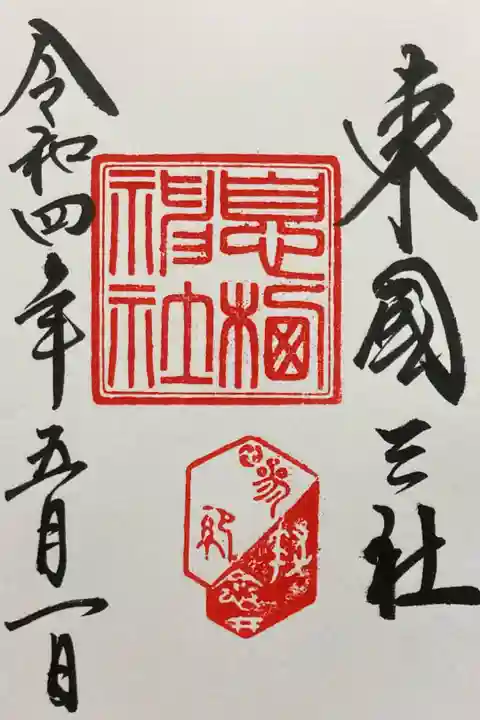 東國三社
息栖神社
参拝記念
令和四年五月一日